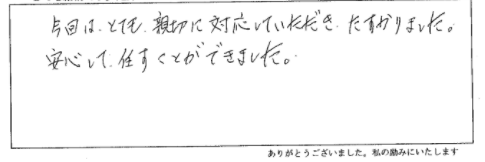 今回は、とても、親切に対応していただき、たすかりました。
安心して、任すことができました。
ありがとうございました。私の励みにいたします